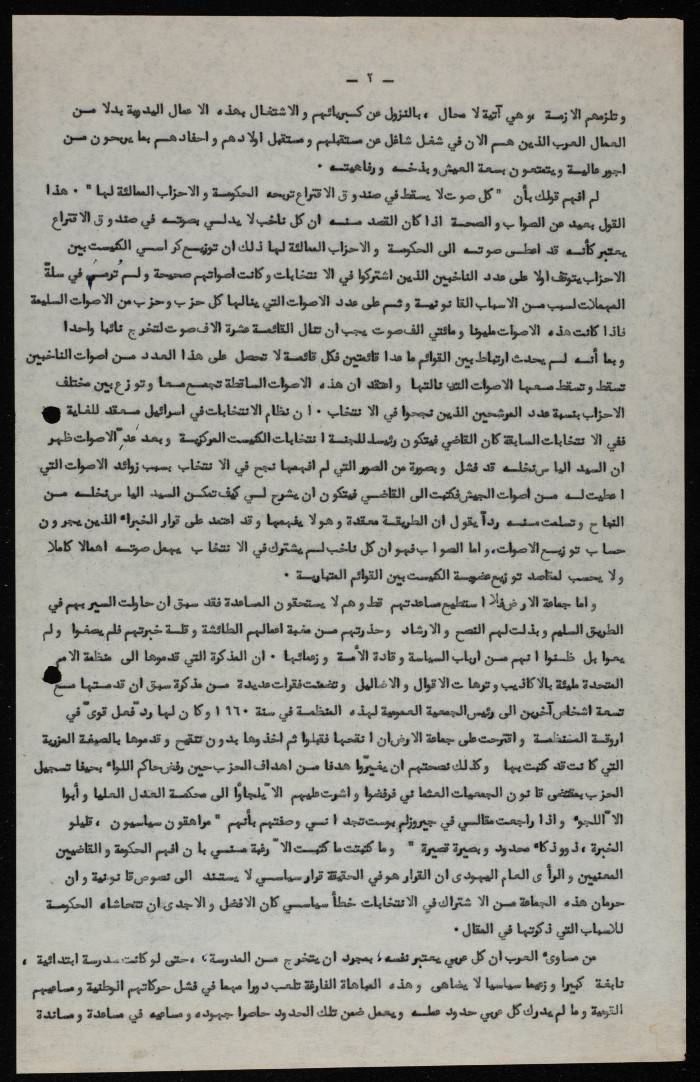 — ٢ —
وتلزمهم الازمة ، وهي آتية لا محال ، بالنزول عن كبريائهم والاشتغال بهذه الاعمال اليدوية بدلا من
العمال العرب الذين هم الان في شغل شاغل عن مستقبلهم ومستقبل اولادهم واحفادهم بما يربحون من
اجور عالية ويتمتعون بسعة العيش وبذخه ورفاهيته .
لم افهم قولك بأن " كل صوت لا يسقط في صندوق الاقتراع تربحه الحكومة والاحزاب الممالئة لها " . هذا
القول بعيد عن الصواب والصحة اذا كان القصد منه ان كل ناخب لا يدلي بصوته في صندوق الاقتراع
يعتبر كأنه قد اعطى صوته الى الحكومة والاحزاب الممالئة لها ذلك ان توزيع كراسي الكنيست بين
الاحزاب يتوقف اولا على عدد الناخبين الذين اشتركوا في الانتخابات وكانت اصواتهم صحيحة ولم تُرمَ في سلّة
المهملات لسبب من الاسباب القانونية وثم على عدد الاصوات التي ينالها كل حزب وحزب من الاصوات السليمة
فاذا كانت هذه الاصوات مليونا ومائتي الف صوت يجب ان تنال القائمة عشرة الاف صوت لتخرج نائبا واحدا
وبما أنه لم يحدث ارتباط بين القوائم ما عدا قائمتين فكل قائمة لا تحصل على هذا العدد من اصوات الناخبين
تسقط وتسقط معها الاصوات التي نالتها واعتقد ان هذه الاصوات الساقطة تجمع معا وتوزع بين مختلف
الاحزاب بنسبة عدد المرشحين الذين نجحوا في الانتخاب . ان نظام الانتخابات في اسرائيل معقد للغاية
ففي الانتخابات السابقة كان القاضي فيتكون رئيسا للجنة انتخابات الكنيست المركزية وبعد عدّ الاصوات ظهر
ان السيد الياس نخله قد فشل وبصورة من الصور التي لم افهمها نجح في الانتخاب بسبب زوائد الاصوات التي
اعطيت له من اصوات الجيش فكتبت الى القاضي فيتكون ان يشرح لي كيف تمكن السيد الياس نخله من
النجاح وتسلمت منه رداً يقول ان الطريقة معقدة وهو لا يفهمها وقد اعتمد على قرار الخبراء الذين يجرون
حساب توزيع الاصوات . واما الصواب فهو ان كل ناخب لم يشترك في الانتخاب يهمل صوته اهمالا كاملا
ولا يحسب لمقاصد توزيع عضوية الكنيست بين القوائم المتبارية .
واما جماعة الارض فلا استطيع مساعدتهم قط وهم لا يستحقون المساعدة فقد سبق ان حاولت السير بهم في
الطريق السليم وبذلت لهم النصح والارشاد وحذرتهم من مغبة اعمالهم الطائشة وقلة خبرتهم فلم يصغوا ولم
يعوا بل ظنوا انهم من ارباب السياسة وقادة الأمة وزعمائها . ان المذكرة التي قدموها الى منظمة الامم
المتحدة مليئة بالاكاذيب وترهات الاقوال والاضاليل وتضمنت فقرات عديدة من مذكرة سبق ان قدمتها مع
تسعة اشخاص آخرين الى رئيس الجمعية العمومية لهذه المنظمة في سنة ١٩٦٠ وكان لها ردّ فعل قويّ في
اروقة المنظمة واقترحت على جماعة الارض ان انقحها فقبلوا ثم اخذوها بدون تنقيح وقدموها بالصيغة المزرية
التي كانت قد كتبت بها وكذلك نصحتهم ان يغيّروا هدفا من اهداف الحزب حين رفض حاكم اللواء بحيفا تسجيل
الحزب بمقتضى قانون الجمعيات العثماني فرفضوا واشرت عليهم الاّ يلجاؤا الى محكمة العدل العليا وأبوا
الاّ اللجوء واذا راجعت مقالي في جيروزلم بوست تجد انني وصفتهم بأنهم " مراهقون سياسيون ، قليلو
الخبرة ، ذوو ذكاء محدود وبصيرة قصيرة " وما كتبت ما كتبت الاّ رغبة مني بان افهم الحكومة والقاضيين
المعنيين والرأى العام اليهودى ان القرار هو في الحقيقة قرار سياسي لا يستند الى نصوص قانونية وان
حرمان هذه الجماعة من الاشتراك في الانتخابات خطأ سياسي كان الافضل والاجدى ان تتحاشاه الحكومة
للاسباب التي ذكرتها في المقال .
من مساوىء العرب ان كل عربي يعتبر نفسه ، بمجرد ان يتخرج من المدرسة ، حتى لو كانت مدرسة ابتدائية ،
نابغة كبيرا وزعيما سياسيا لا يضاهى وهذه المباهاة الفارغة تلعب دورا مهما في فشل حركاتهم الوطنية ومساعيهم
القومية وما لم يدرك كل عربي حدود عمله ويعمل ضمن تلك الحدود حاصرا جهوده ومساعيه في مساعدة ومساندة